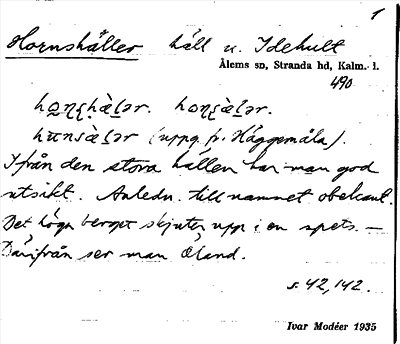 1
Hornshäller häll v. Idehult
Ålems sn, Stranda hd, Kalm. l.
490
(uppg. fr. Häggemåla).
Ifrån den stora hällen har man god
utsikt. Anledn. till namnet obekant.
Det höga berget skjuter upp i en spets. —
Därifrån ser man Öland.
s. 42, 142.
Ivar Modéer 1935